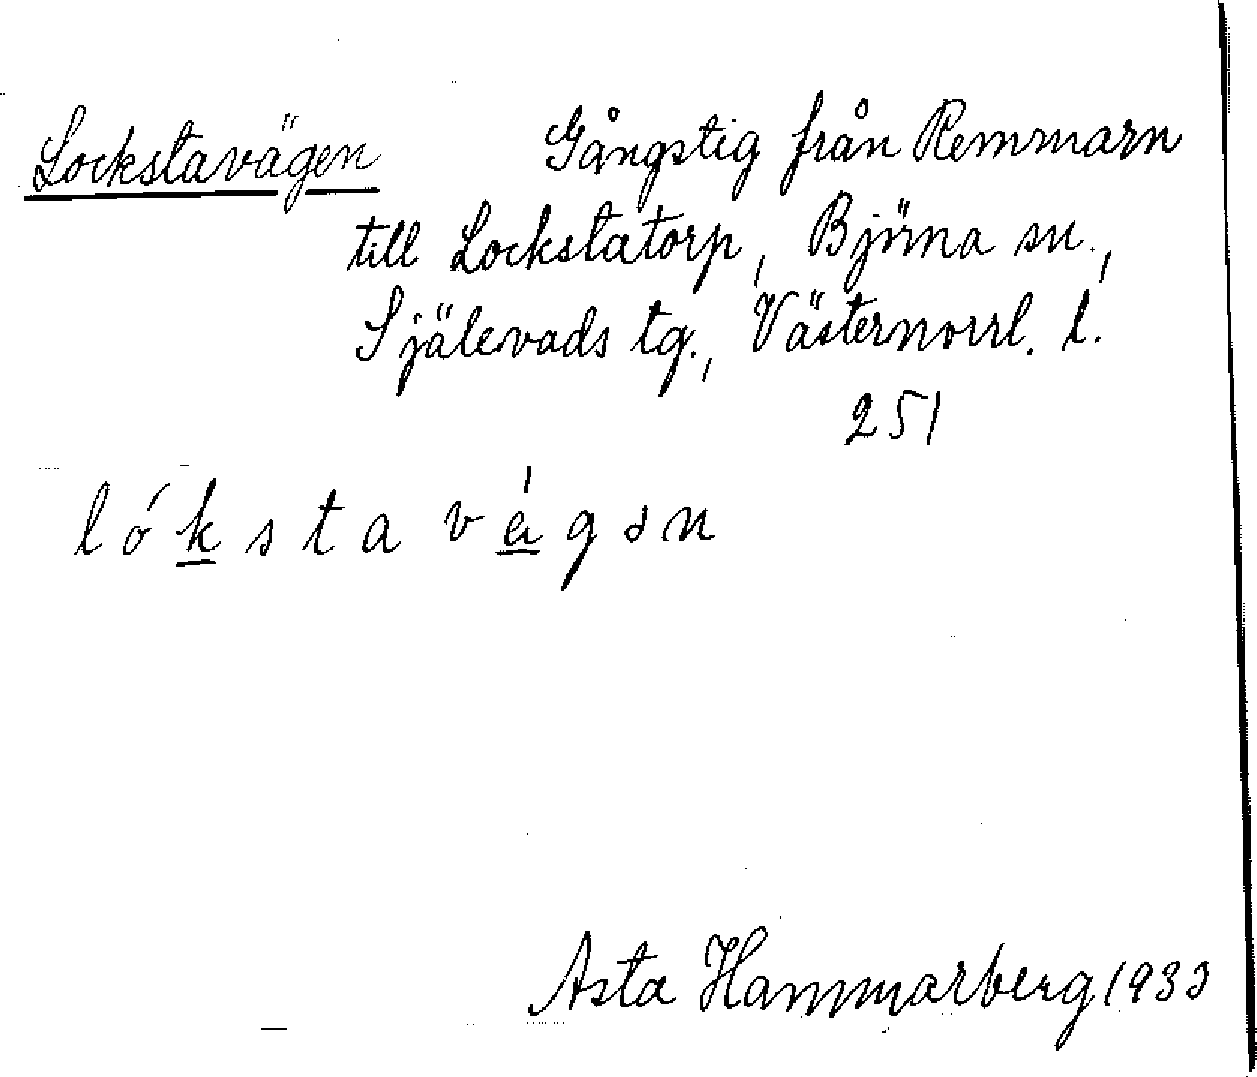 Lockstavägen Gångstig från Remmarn
till Lockstatorp, Björna sn.,
Själevads tg., Västernorrl. l.
251
lókstavä́gən
Asta Hammarberg 1933